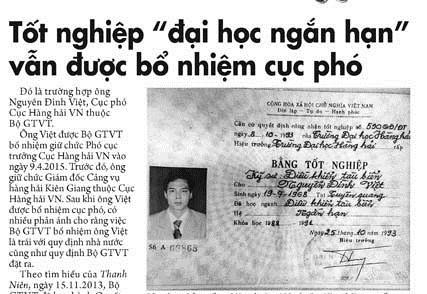 Tốt nghiệp “đại học ngắn hạn”
vẫn được bổ nhiệm cục phó
Đó là trường hợp ông
Nguyễn Đình Việt, Cục phó
Cục Hàng hải VN thuộc
Bộ GTVT.
Ông Việt được Bộ GTVT
bổ nhiệm giữ chức Phó cục
trưởng Cục Hàng hải VN vào
ngày 9.4.2015. Trước đó, ông
giữ chức Giám đốc Cảng vụ
hàng hải Kiên Giang thuộc Cục
Hàng hải VN. Sau khi ông Việt
được bổ nhiệm cục phó, có
nhiều phản ánh cho rằng việc
Bộ GTVT bổ nhiệm ông Việt
là trái với quy định nhà nước
cũng như quy định Bộ GTVT
đặt ra.
Theo tìm hiểu của Thanh
Niên, ngày 15.11.2013, Bộ
CỘNG HÒA XÃ HỘI CHỦ NGHĨA VIỆT NAM
Độc lập - Tự do - Hạnh phúc
Căn cứ quyết định công nhận tốt nghiệp số
ngày 8-10-1993 của Trường Đại học Hàng hải
Hiệu trưởng Trường Đại học Hàng hải cấp
BẰNG TỐT NGHIỆP
Kỹ sư Điều khiển tàu biển
Nguyễn Đình Việt
Sinh ngày 19-9-1968 tại Tuyên quang
Ngành học Điều khiển tàu biển
Hệ Ngắn hạn
Khóa học
Ngày 25 tháng 10 năm 1993
Hiệu trưởng
Số A